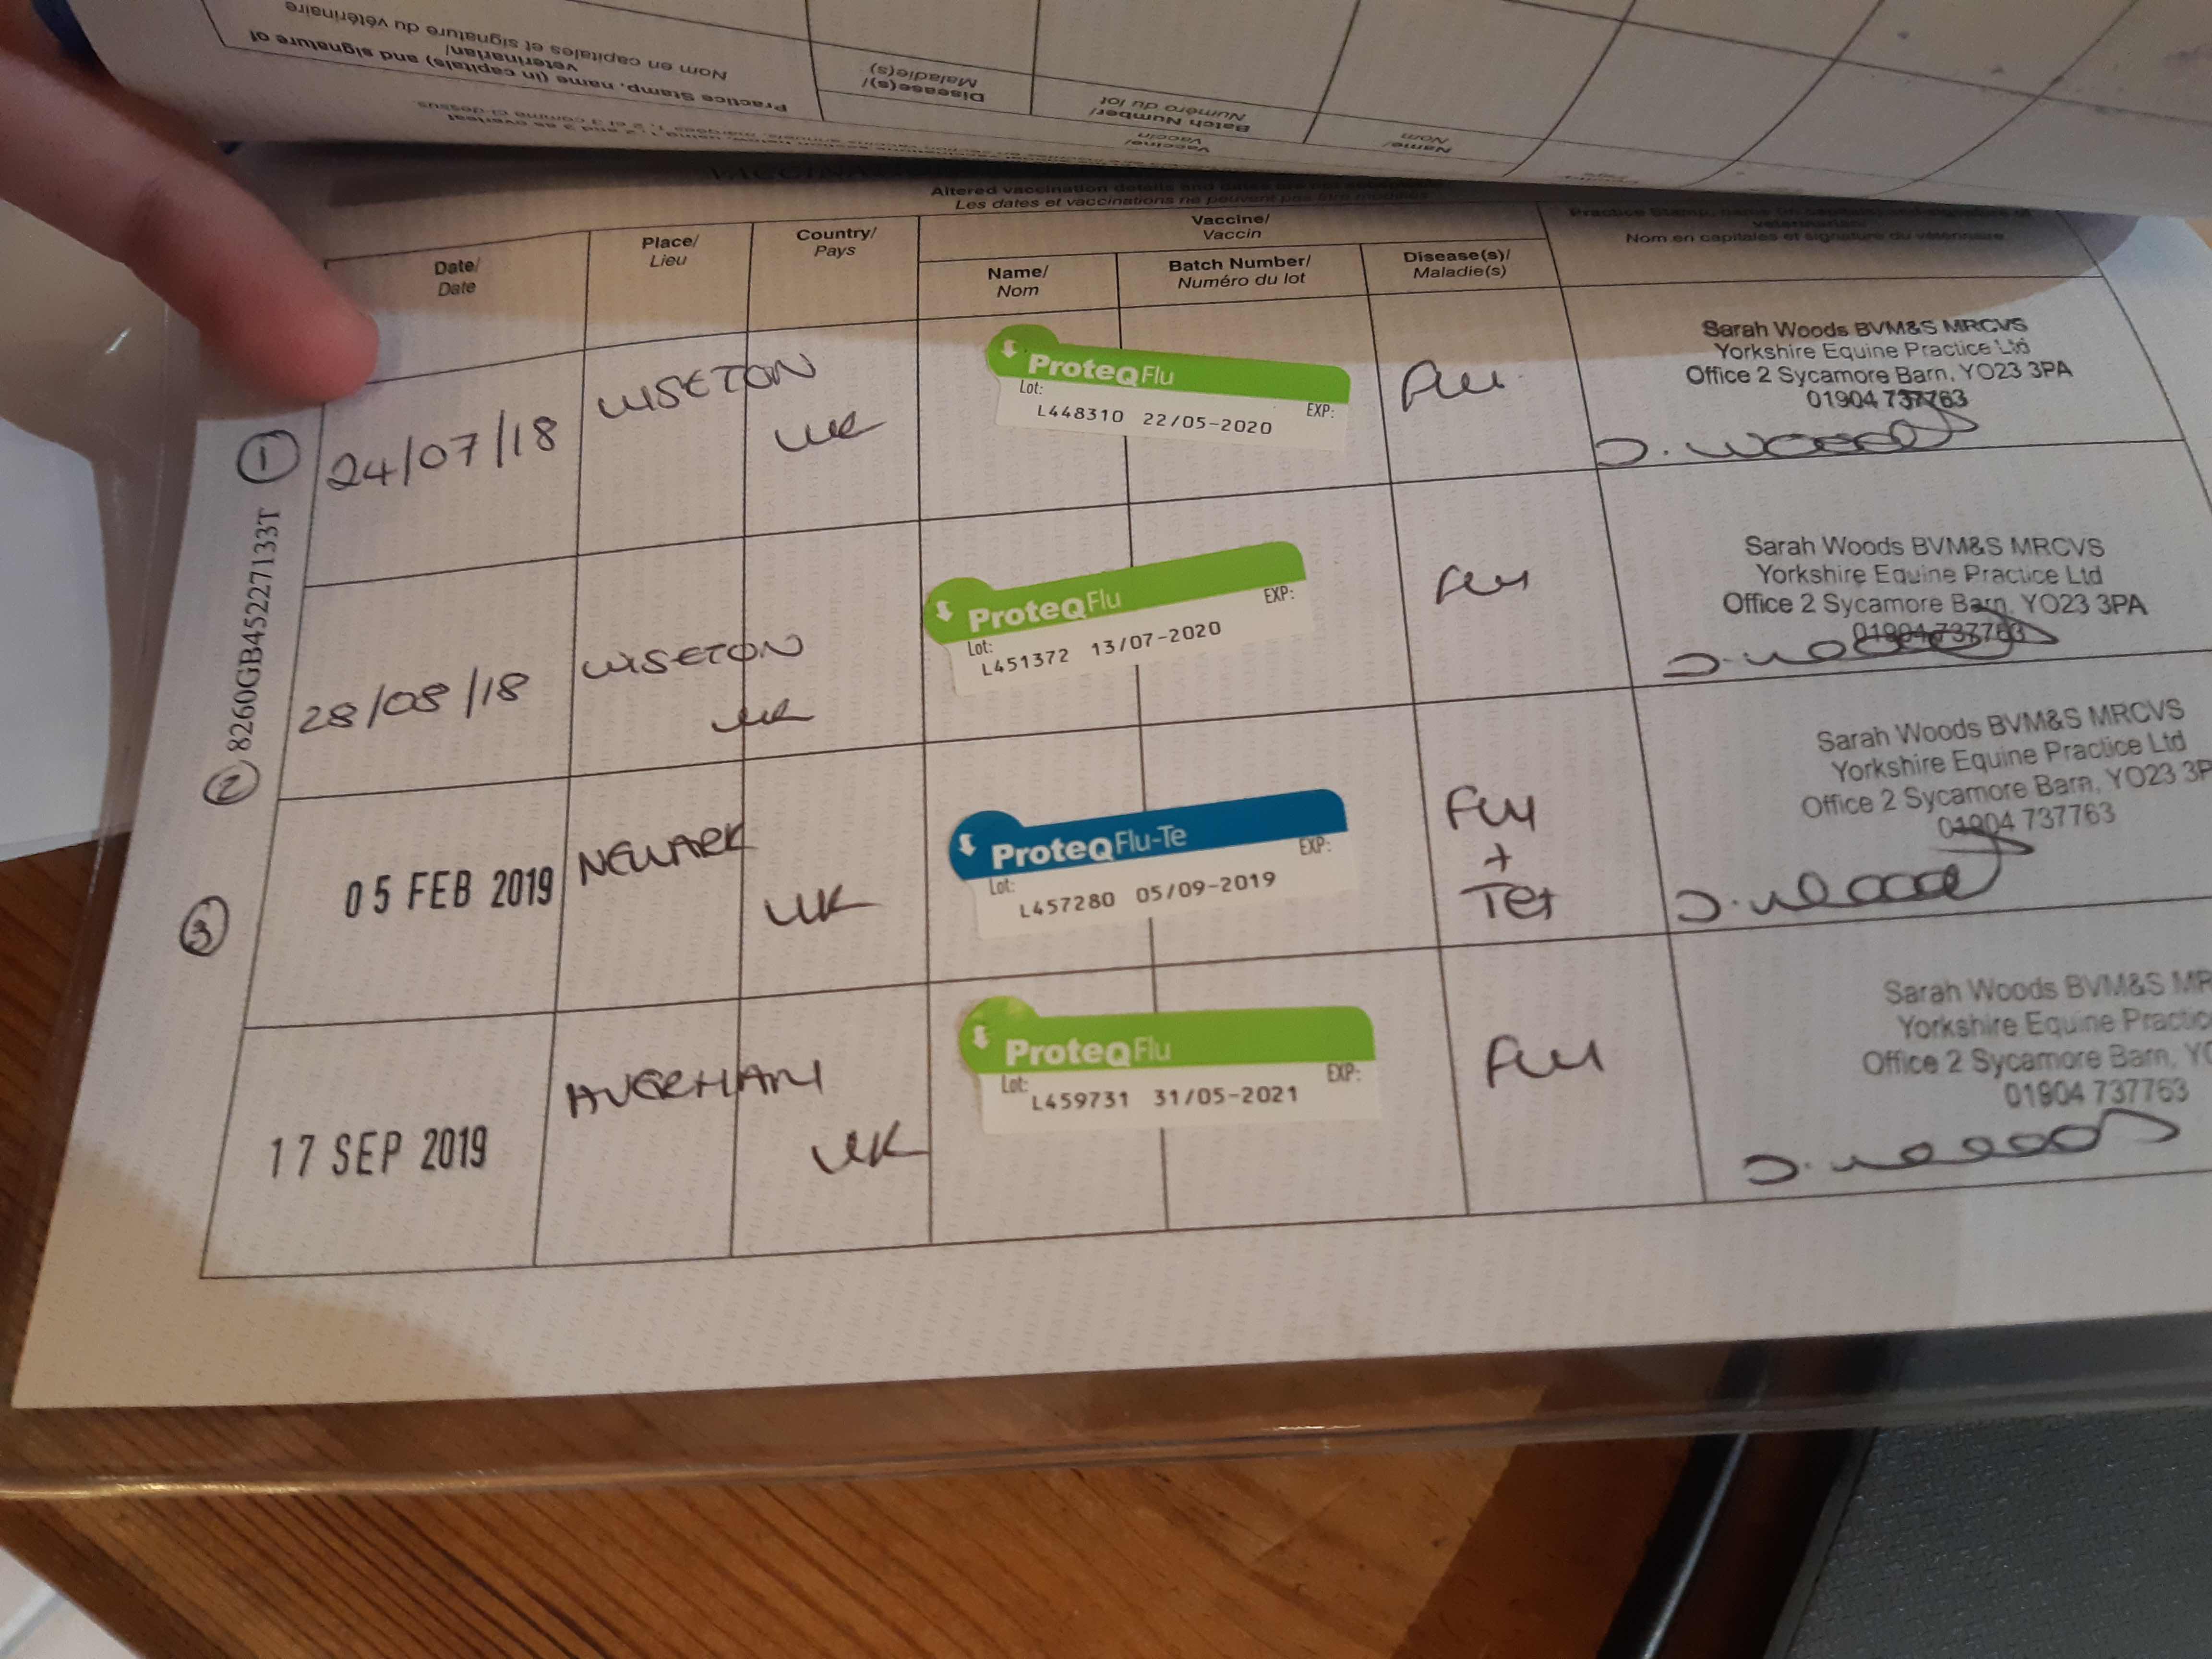 Nom en capitales et signature du vétérinaire
Practice Stamp, name (in capitals) and signature of
veterinarian/
Disease(s)/
Maladie(s)
Batch Number/
Numéro du lot
Vaccine/
Vaccin
Name/
Nom
Altered vaccination details and dates are not
Les dates et vaccinations ne peuvent pas être modifiés
Date/
Date
Place/
Lieu
Country/
Pays
Vaccine/
Vaccin
Name/
Nom
Batch Number/
Numéro du lot
Disease(s)/
Maladie(s)
Practice Stamp, name (in capitals) and signature of
veterinarian/
Nom en capitales et signature du vétérinaire
8260GB45227133T
1
24/07/18
WISETON
UK
ProteqFlu
Lot:
EXP:
L448310 22/05-2020
Flu
Sarah Woods BVM&S MRCVS
Yorkshire Equine Practice Ltd
Office 2 Sycamore Barn, YO23 3PA
01904 737763
S. Woods
2
28/08/18
WISETON
UK
ProteqFlu
Lot:
EXP:
L451372 13/07-2020
Flu
Sarah Woods BVM&S MRCVS
Yorkshire Equine Practice Ltd
Office 2 Sycamore Barn, YO23 3PA
01904 737763
S. Woods
3
05 FEB 2019
NEWARK
UK
ProteqFlu-Te
Lot:
EXP:
L457280 05/09-2019
Flu
+
Tet
Sarah Woods BVM&S MRCVS
Yorkshire Equine Practice Ltd
Office 2 Sycamore Barn, YO23 3P
01904 737763
S. Woods
17 SEP 2019
AVERHAM
UK
ProteqFlu
Lot:
EXP:
L459731 31/05-2021
Flu
Sarah Woods BVM&S MR
Yorkshire Equine Practic
Office 2 Sycamore Barn, YO
01904 737763
S. Woods